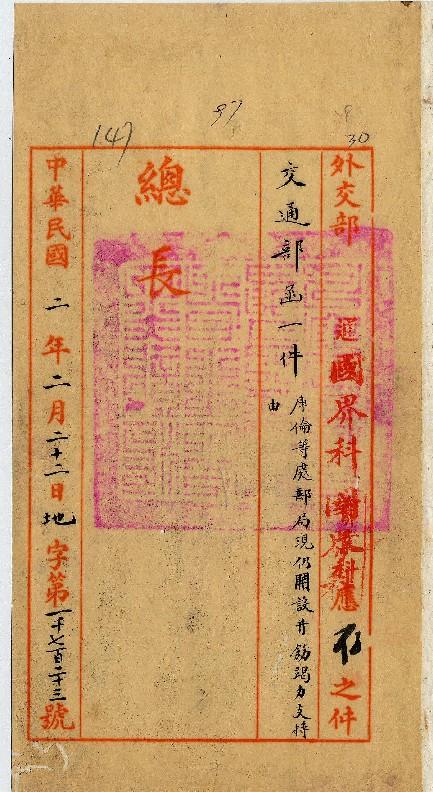 147
97
30
外交部 國界科 科應存之件
交通部函一件 庫倫等處郵局現仍開設并飭竭力支持由
總長
中華民國二年二月二十二日地字第一千七百二十三號